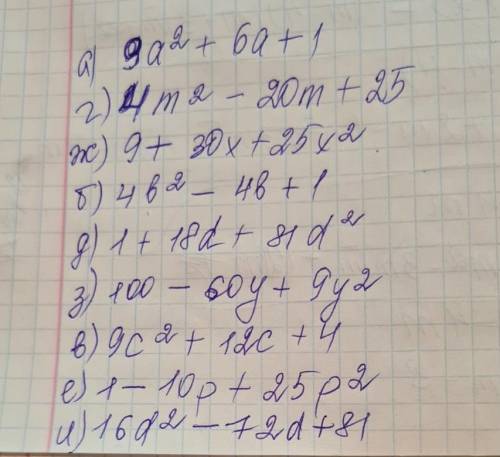 а) 9a² + 6a + 1
г) 4m² - 20m + 25
ж) 9 + 30x + 25x²
б) 4b² - 4b + 1
д) 1 + 18d + 81d²
з) 100 - 60y + 9y²
в) 9c² + 12c + 4
е) 1 - 10p + 25p²
и) 16d² - 72d + 81